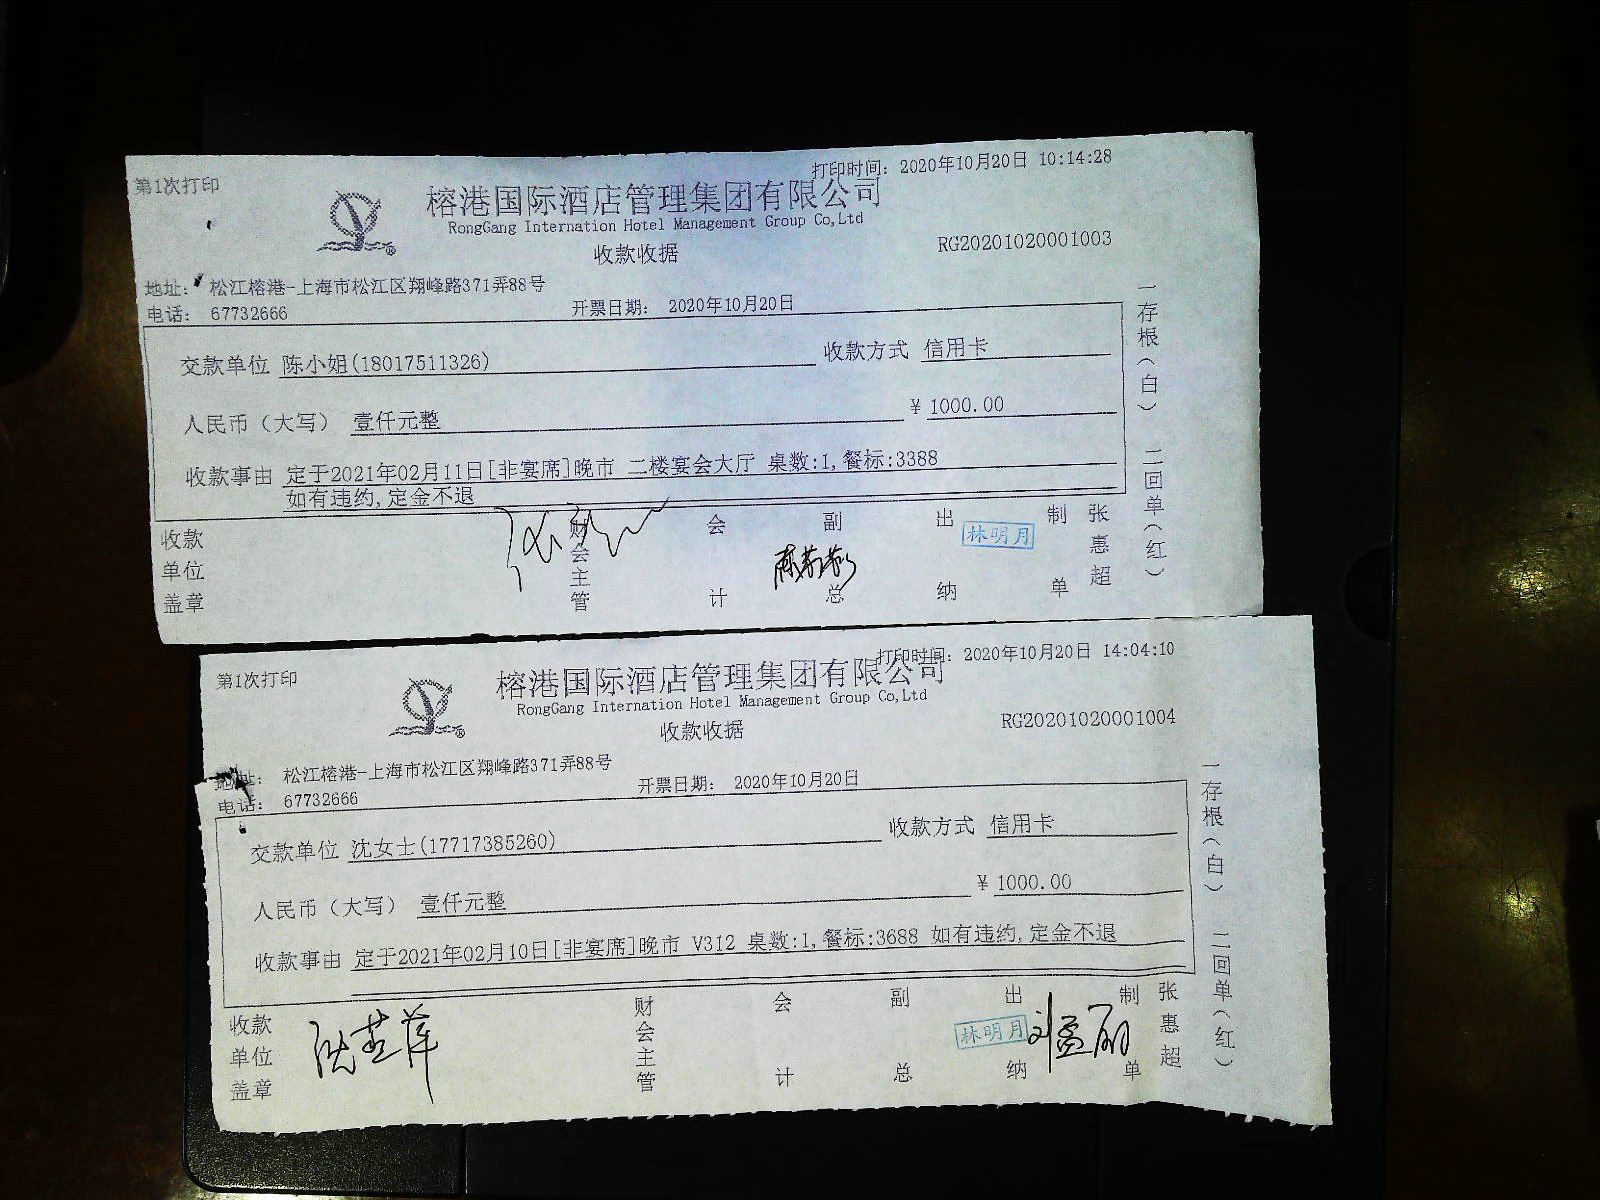 第1次打印
打印时间: 2020年10月20日 10:14:28
榕港国际酒店管理集团有限公司
RongGang Internation Hotel Management Group Co,Ltd
收款收据
RG20201020001003
地址: 松江榕港-上海市松江区翔峰路371弄88号
电话: 67732666
开票日期: 2020年10月20日
交款单位 陈小姐(18017511326)
收款方式 信用卡
人民币（大写） 壹仟元整
¥ 1000.00
收款事由 定于2021年02月11日[非宴席]晚市 二楼宴会大厅 桌数:1,餐标:3388
如有违约,定金不退
收款单位盖章
财会主管
会计
副总
出纳
林明月
制单
张惠超
一存根(白)
二回单(红)
第1次打印
打印时间: 2020年10月20日 14:04:10
榕港国际酒店管理集团有限公司
RongGang Internation Hotel Management Group Co,Ltd
收款收据
RG20201020001004
地址: 松江榕港-上海市松江区翔峰路371弄88号
电话: 67732666
开票日期: 2020年10月20日
交款单位 沈女士(17717385260)
收款方式 信用卡
人民币（大写） 壹仟元整
¥ 1000.00
收款事由 定于2021年02月10日[非宴席]晚市 V312 桌数:1,餐标:3688 如有违约,定金不退
收款单位盖章
财会主管
会计
副总
出纳
林明月
制单
张惠超
一存根(白)
二回单(红)